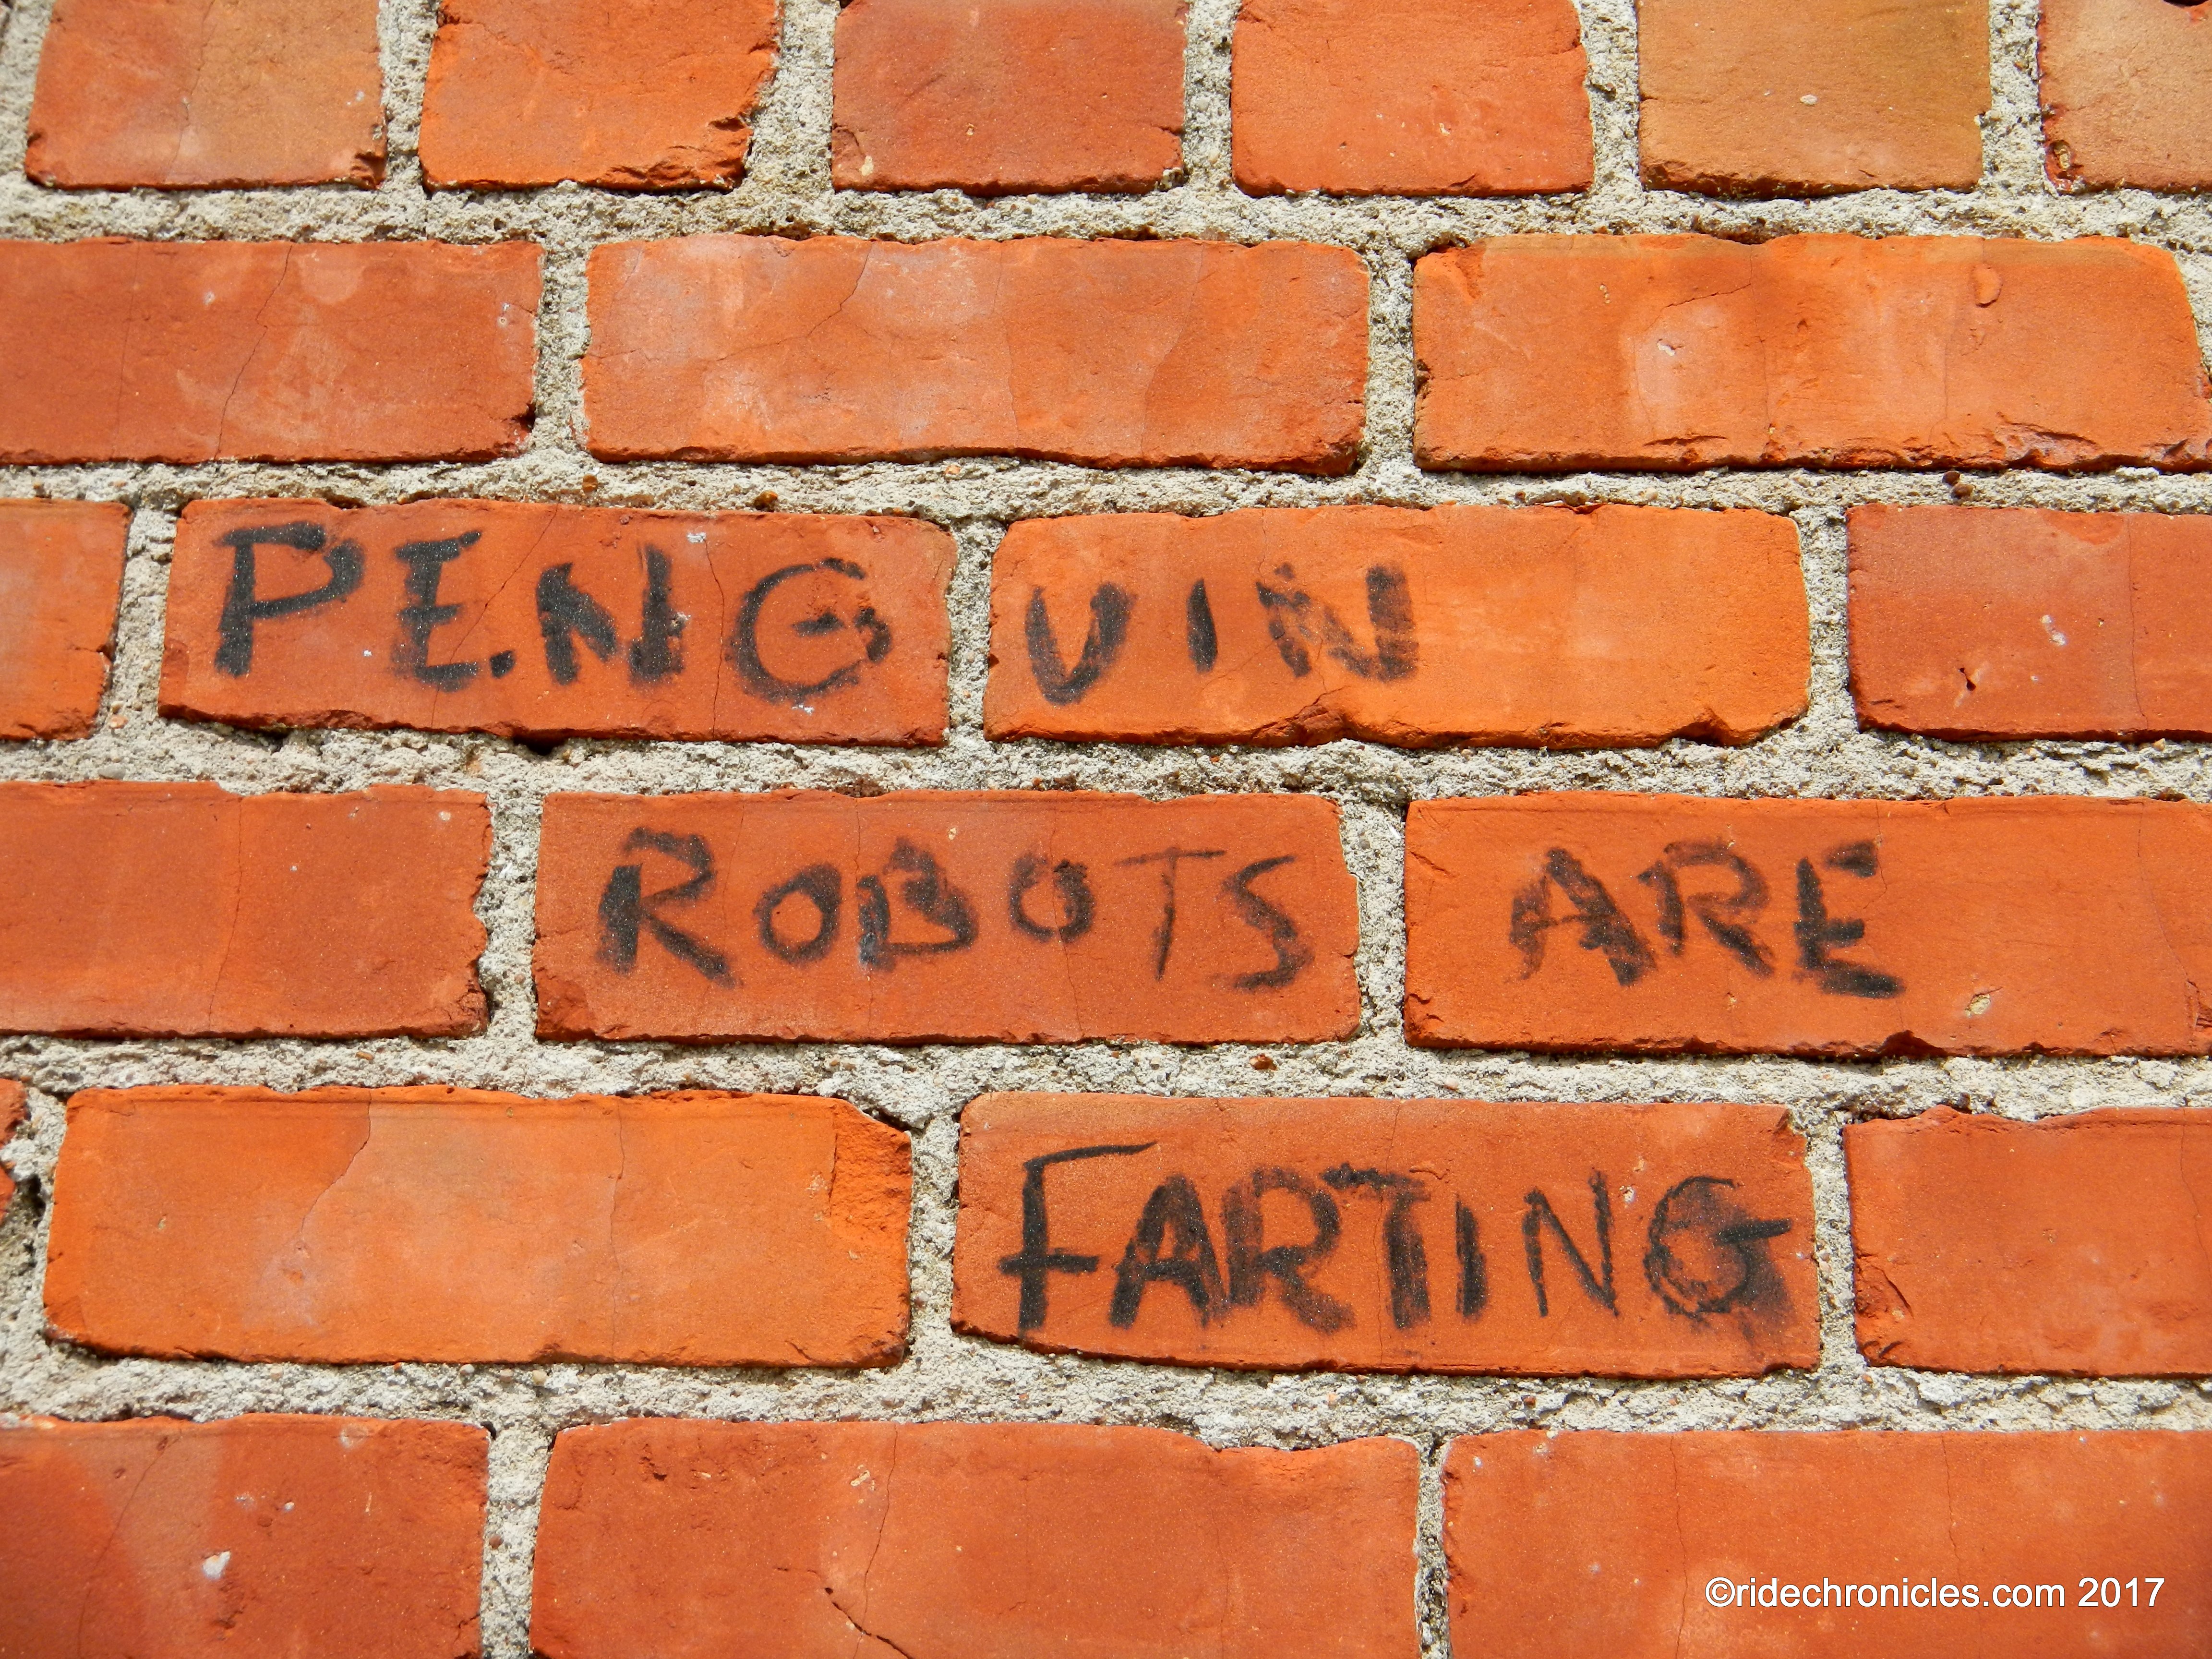 PENGUIN
ROBOTS ARE
FARTING
©ridechronicles.com 2017